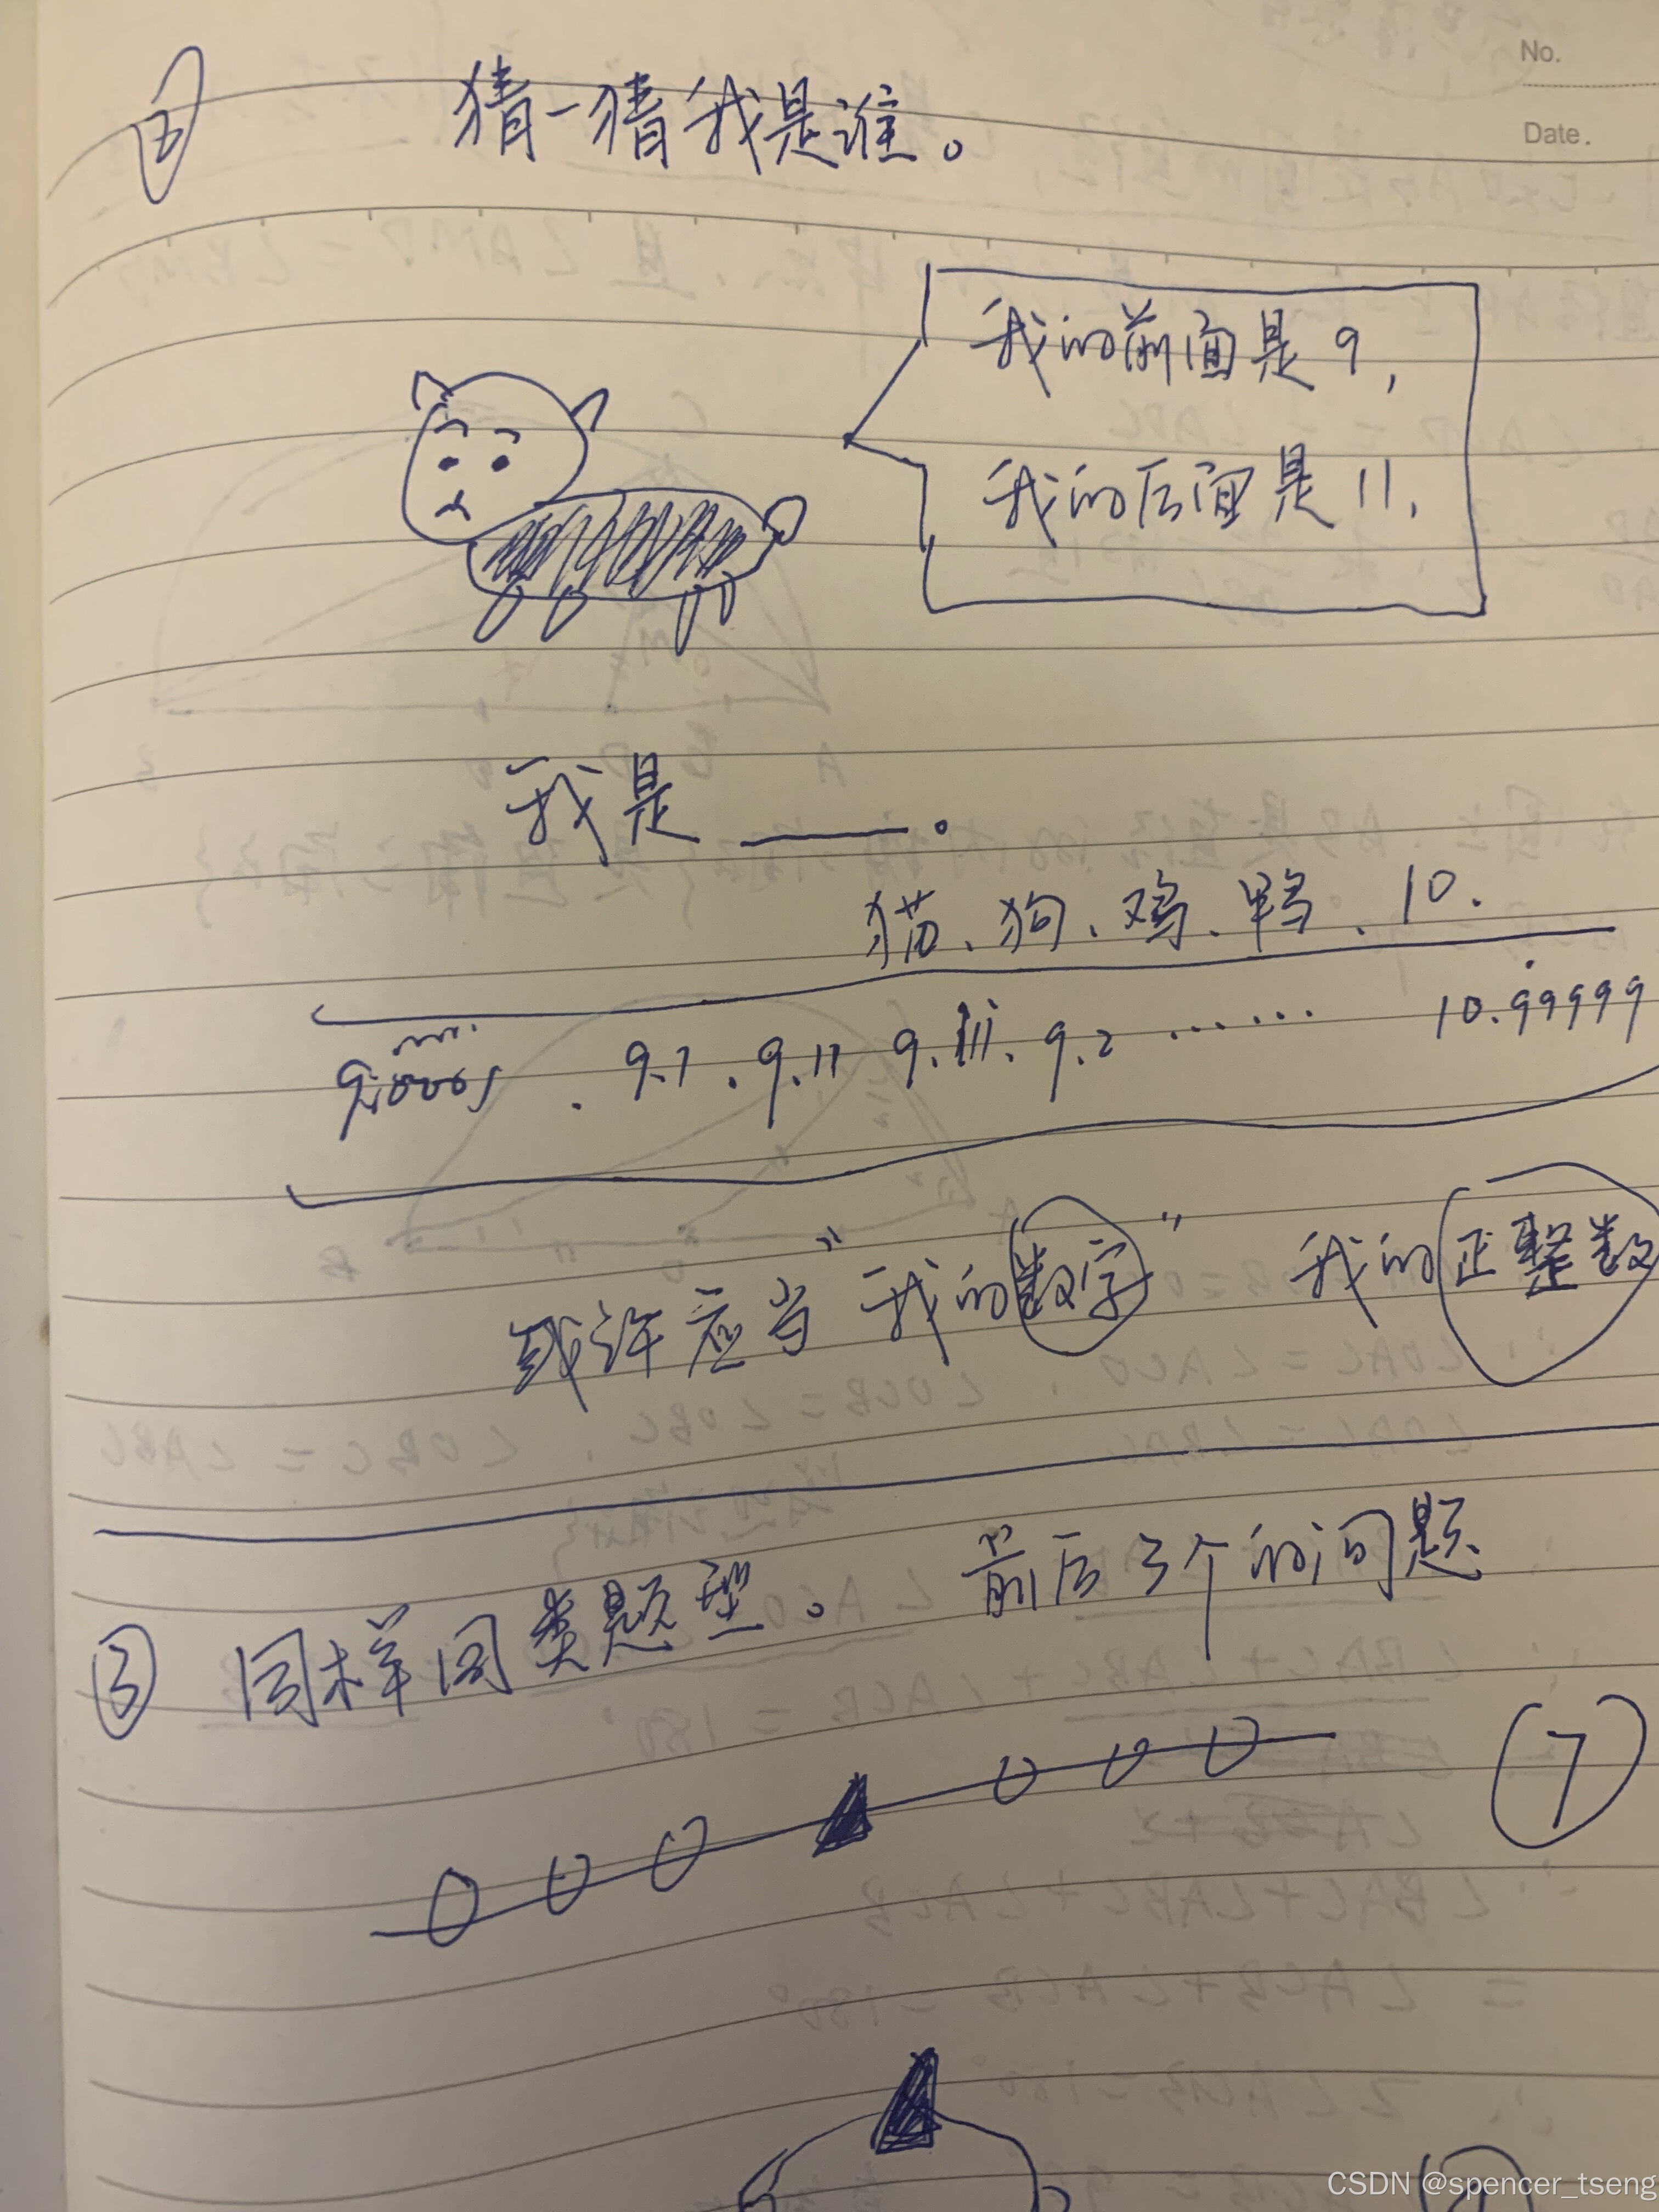 No.
Date.
猜一猜我是谁。
我的前面是9,
我的后面是11,
我是 ____ 。
猫、狗、鸡、鸭、10.
9.1 . 9.11 9.111. 9.2 ...... 10.99999
或许应当"我的数字" 我的正整数
③ 同样同类题型。前后3个的问题
7
CSDN @spencer_tseng